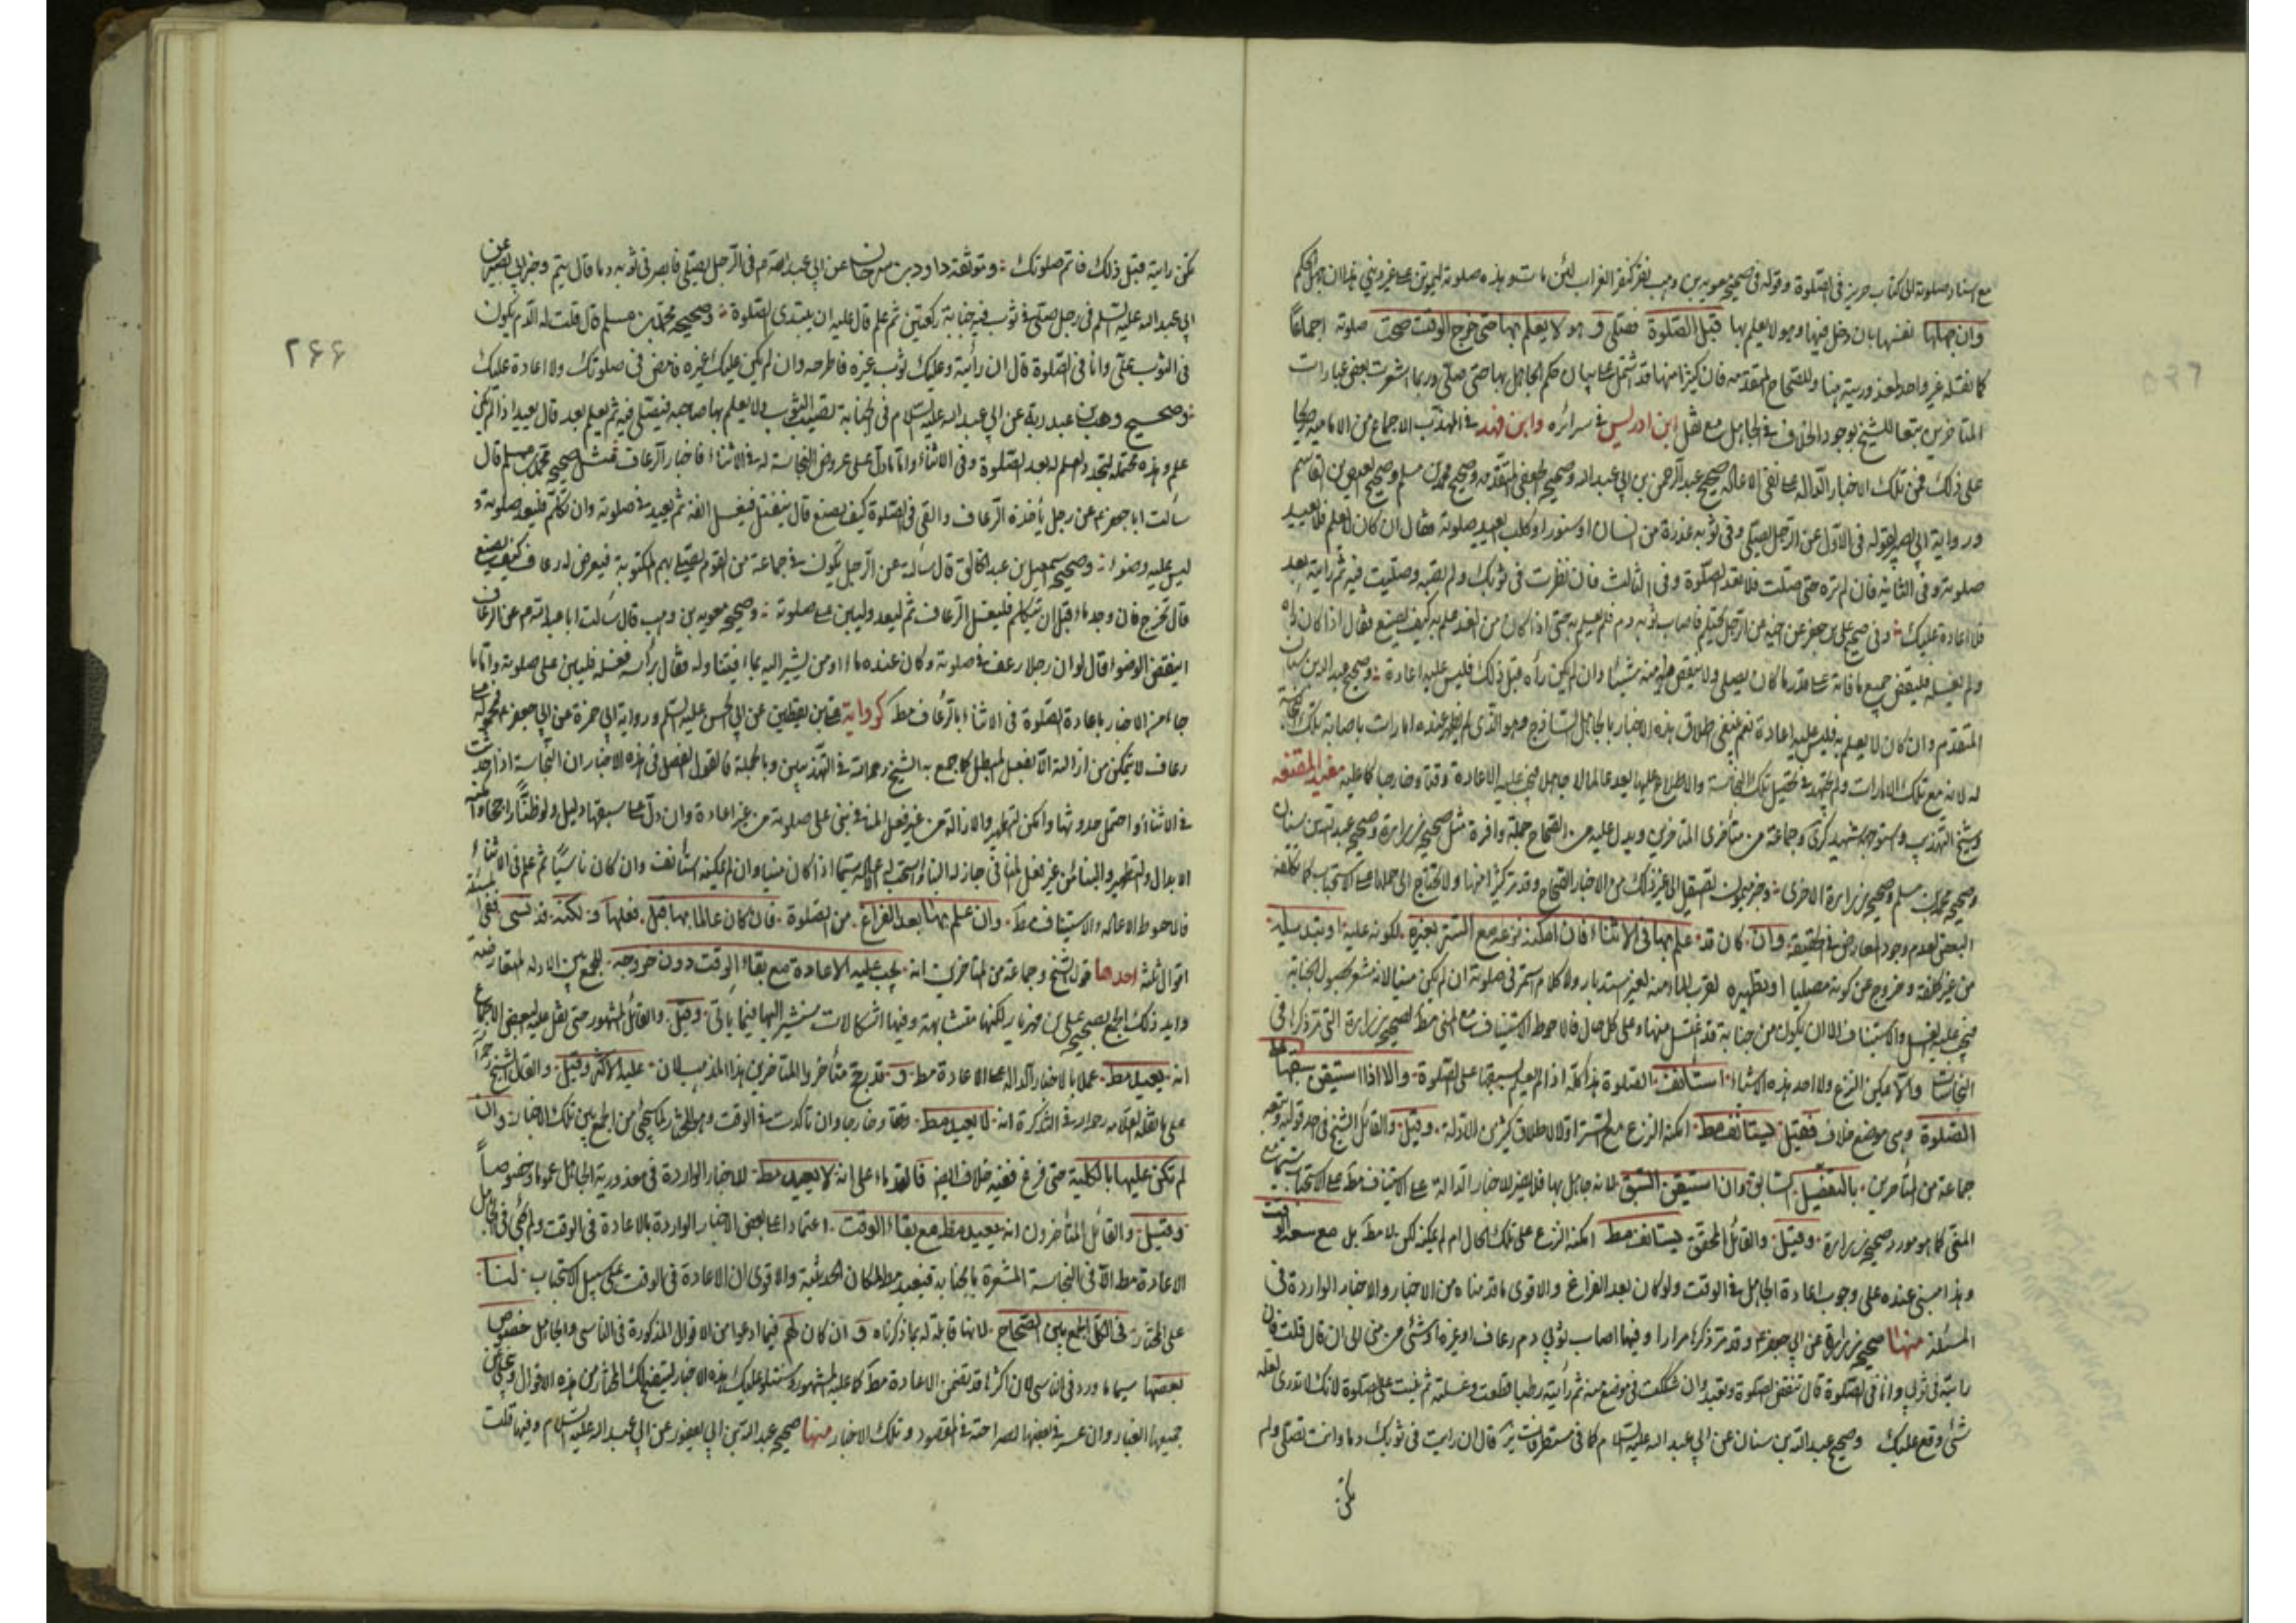 مع اسناد صلوته الى كتاب حريز فى الصلوة وقوله فى صحيح معوية بن وهب نقر كنقر الغراب لئن مات وهذه صلوته ليموتن على غير دينى هذا ان جهل الحكم
وان جهلها نفسها بان دخل فيها وهو لا يعلم بها قبل الصلوة فصلى و هو لا يعلم بها حتى خرج الوقت صحت صلوته اجماعًا
كما نقله غير واحد لمعذوريته هنا وللصحاح المتقدمه فان كثيرًا منها قد اشتمل على بيان حكم الجاهل بها حتى صلى وربما اشعرت بعض عبارات
المتاخرين تبعا للشيخ بوجود الخلاف فى الجاهل مع نقل ابن ادريس فى سرائره وابن فهد فى المهذب الاجماع من الاماميه
على ذلك فمن تلك الاخبار الداله على نفى الاعاده صحيح عبد الرحمن بن ابى عبد الله وصحيح الجعفى المتقدمه وصحيح محمد بن مسلم وصحيح العيص بن القاسم
ورواية ابى بصير لقوله فى الاول عن الرجل يصلى وفى ثوبه عذرة من انسان او سنور او كلب ايعيد صلوته فقال ان كان لم يعلم فلا يعيد
صلوته وفى الثانيه فان لم تره حتى صليت فلا تعد الصلوة وفى الثالث فان نظرت فى ثوبك ولم تصبه وصليت فيه ثم رايته بعد
فلا اعادة عليك وفى صحيح على بن جعفر عن اخيه عن الرجل يحتجم فاصاب ثوبه دم فلم يعلم به حتى اذا كان من الغد علم به كيف يصنع فقال اذا كان رآه
ولم يغسله فليقض جميع ما فاته على قدر ما كان يصلى ولا ينقص منه شيئا وان لم يكن رآه قبل ذلك فليس عليه اعادة وصحيح عبد الله بن سنان
المتقدم وان كان لا يعلم به فليس عليه اعادة نعم ينبغى اطلاق هذه الاخبار بالجاهل الساذج وهو الذى لم يظهر عنده امارات باصابة تلك النجاسة
له لانه مع تلك الامارات ولم يجتهد فى تحصيل تلك النجاسة والاطلاع عليها يعد عالما لا جاهل فيجب عليه الاعادة وقتا وخارجا كما عليه مفيد المقنعه
وشيخ التهذيب وشهيد ذكرى وجماعة من متأخرى المتاخرين ويدل عليه من الصحاح جملة وافرة مثل صحيح زرارة وصحيح عبد الله بن سنان
وصحيح محمد بن مسلم وصحيح زرارة الاخرى وخبر ميمون الصيقل الى غير ذلك من الاخبار الصحاح وقد مر كثير منها ولا يحتاج الى حملها على الاستحباب كما تكلفه
البعض لعدم وجود المعارض فى الحقيقة وان كان قد علم بها فى الاثناء فان امكنه نزعه مع الستر بغيره لكونه عليه او تبديله
من غير كلفة وخروج عن كونه مصليا او تطهيره لقرب الماء منه لغير استدبار ولا كلام استمر فى صلوته ان لم يكن منيا لانه مشعر بحصول الجنابة
فيجب عليه الغسل والاستيناف الا ان يكون من جنابة قد اغتسل منها وعلى كل حال فالاحوط الاستيناف مع المنى مط لصحيح زرارة التى مر ذكرها فى
النجاسات والا يمكن النزع ولا احد هذه الاشياء استأنف الصلوة هذا كله اذا لم يعلم بسبقها على الصلوة والا اذا استيقن سبقها على
الصلوة وهى موضع خلاف فقيل يستأنف مط امكنه النزع مع الستر اولا لاطلاق كثير من الادلة وقيل والقائل الشيخ فى احد قوليه وتبعه
جماعة من المتأخرين بالتفصيل السابق وان استيقن السبق لانه جاهل بها فلا يعتبر الاخبار الدالة على الاستيناف مط على الاستحباب سيما مع
المنى كما هو مورد صحيح زرارة وقيل والقائل المحقق يستأنف مط امكنه النزع على تلك الحال ام لم يمكنه لكن لا مط بل مع سعة الوقت
وهذا مبنى عنده على وجوب اعادة الجاهل فى الوقت ولو كان بعد الفراغ والاقوى ما قدمناه من الاخبار والاخبار الواردة فى
المسئلة منها صحيح زرارة عن ابى جعفر ع وقد مر ذكرها مرارا وفيها اصاب ثوبى دم رعاف او غيره او شئ من منى الى ان قال قلت فان
رايته فى ثوبى وانا فى الصلوة قال تنقض الصلوة وتعيد وان شككت فى موضع منه ثم رأيته رطبا قطعت وغسلته ثم بنيت على الصلوة لانك لا تدرى لعله
شئ وقع عليك وصحيح عبد الله بن سنان عن ابى عبد الله عليه السلام كما فى مستطرفات السرائر قال ان رايت فى ثوبك دما وانت تصلى ولم
تكن
٢۶۶
تكن رايته قبل ذلك فاتم صلوتك وموثقة داود بن سرحان عن ابى عبد الله ع فى الرجل يصلى فابصر فى ثوبه دما قال يتم وخبر ابى بصير عن
ابى عبد الله عليه السلم فى رجل صلى فى ثوب فيه جنابة ركعتين ثم علم قال عليه ان يبتدى الصلوة وصحيح محمد بن مسلم قال قلت له الدم يكون
فى الثوب على وانا فى الصلوة قال ان رأيته وعليك ثوب غيره فاطرحه وان لم يكن عليك غيره فامض فى صلوتك ولا اعادة عليك
وصحيح وهب بن عبد ربه عن ابى عبد الله عليه السلام فى الجنابة تصيب الثوب ولا يعلم بها صاحبه فيصلى فيه ثم يعلم بعد قال يعيد اذا لم يكن
علم وهذه محتمله لتجدد العلم له بعد الصلوة وفى الاثناء واما ما دل على عروض النجاسة له فى الاثناء فاخبار الرعاف فمثل صحيح محمد بن مسلم قال
سألت ابا جعفر ع عن رجل يأخذه الرعاف والقى فى الصلوة كيف يصنع قال ينفتل فيغسل انفه ثم يعيد فى صلوته وان تكلم فليعد صلوته و
ليس عليه وضوء وصحيح اسمعيل بن عبد الخالق قال سألته عن الرجل يكون فى جماعة من القوم يصلى بهم المكتوبة فيعرض له رعاف كيف يصنع
قال يخرج فان وجد ماء قبل ان يتكلم فليغسل الرعاف ثم ليعد وليبن على صلوته وصحيح معوية بن وهب قال سألت ابا عبد الله ع عن الرعاف
اينقض الوضوء قال لو ان رجلا رعف فى صلوته وكان عنده ماء او من يشير اليه بماء فيتناوله فقال برأسه فغسله فليبن على صلوته واما ما
جاء من الاخبار باعادة الصلوة فى الاثناء بالرعاف مط كرواية على بن يقطين عن ابى الحسن عليه السلم ورواية ابى حمزة عن ابى جعفر ع فمحمولة على
رعاف لا يتمكن من ازالته الا بفعل المبطل كما جمع به الشيخ رحمه الله فى التهذيبين وبالجملة فالقول الفصل فى هذه الاخبار ان النجاسة اذا حدثت
فى الاثناء او احتمل حدوثها وامكن التطهير والازالة من غير فعل المنافى بنى على صلوته من غير اعادة وان دل على سبقها دليل ولو ظنًّا راجحا وامكنه
الابدال والتطهير والبناء من غير فعل المنافى جاز له البناء واستحب له الاعاده سيما اذا كان منيا وان لم يمكنه استأنف وان كان ناسيًا ثم علم فى الاثناء
فالاحوط الاعاده والاستيناف مط وان علم بها بعد الفراغ من الصلوة فان كان عالما بها قبل فعلها و لكنه قد نسى ففى المسئلة
اقوال ثلثة احدها قول الشيخ وجماعة من المتاخرين انه يجب عليه الاعادة مع بقاء الوقت دون خروجه للجمع بين الادله المتعارضة
وايد ذلك الجمع بصحيح على بن مهزيار لكنها متشابهة وفيها اشكالات سنشير اليها فيما ياتى وقيل والقائل المشهور حتى نقل عليه البعض الاجماع
انه يعيد مط عملا بالاخبار الداله على الاعادة مط و قد رجح متأخروا المتاخرين هذا المذهب لان عليه الاكثر وقيل والقائل الشيخ رحمه الله
على ما نقله العلامه رحمه الله فى التذكرة انه لا يعيد مط وقتا وخارجا وان تأكدت فى الوقت وهو المختار لما سيجئ من الجمع بين تلك الاخبار وان
لم تكن عليها بالكلية حتى فرغ ففيه خلاف ايضا فالقدماء على انه لا يعيد مط للاخبار الواردة فى معذورية الجاهل عموما وخصوصاً
وقيل والقائل المتأخرون انه يعيد مط مع بقاء الوقت اعتمادا على بعض الاخبار الواردة بالاعادة فى الوقت ولم يجئ فى الجاهل
الاعادة مط الا فى النجاسة المشعرة بالجنابة فيعيد مط لمكان الحدثية والاقوى ان الاعادة فى الوقت على سبيل الاستحباب لنا
على المختار فى الكل الجمع بين الصحاح لانها قابلة له بما ذكرناه و ان كان لهم فيما ادعوا من الاقوال المذكورة فى الناسى والجاهل خصوص
بعضها سيما ما ورد فى الناسى لان اكثرها قد تضمن الاعادة مط كما عليه المشهور وسنتلو عليك هذه الاخبار ليتضح لك المختار من هذه الاقوال
جميعها الغبار وان عسر فى بعضها الصراحة فى المقصود وتلك الاخبار منها صحيح عبد الله بن ابى يعفور عن ابى عبد الله عليه السلام وفيها قلت